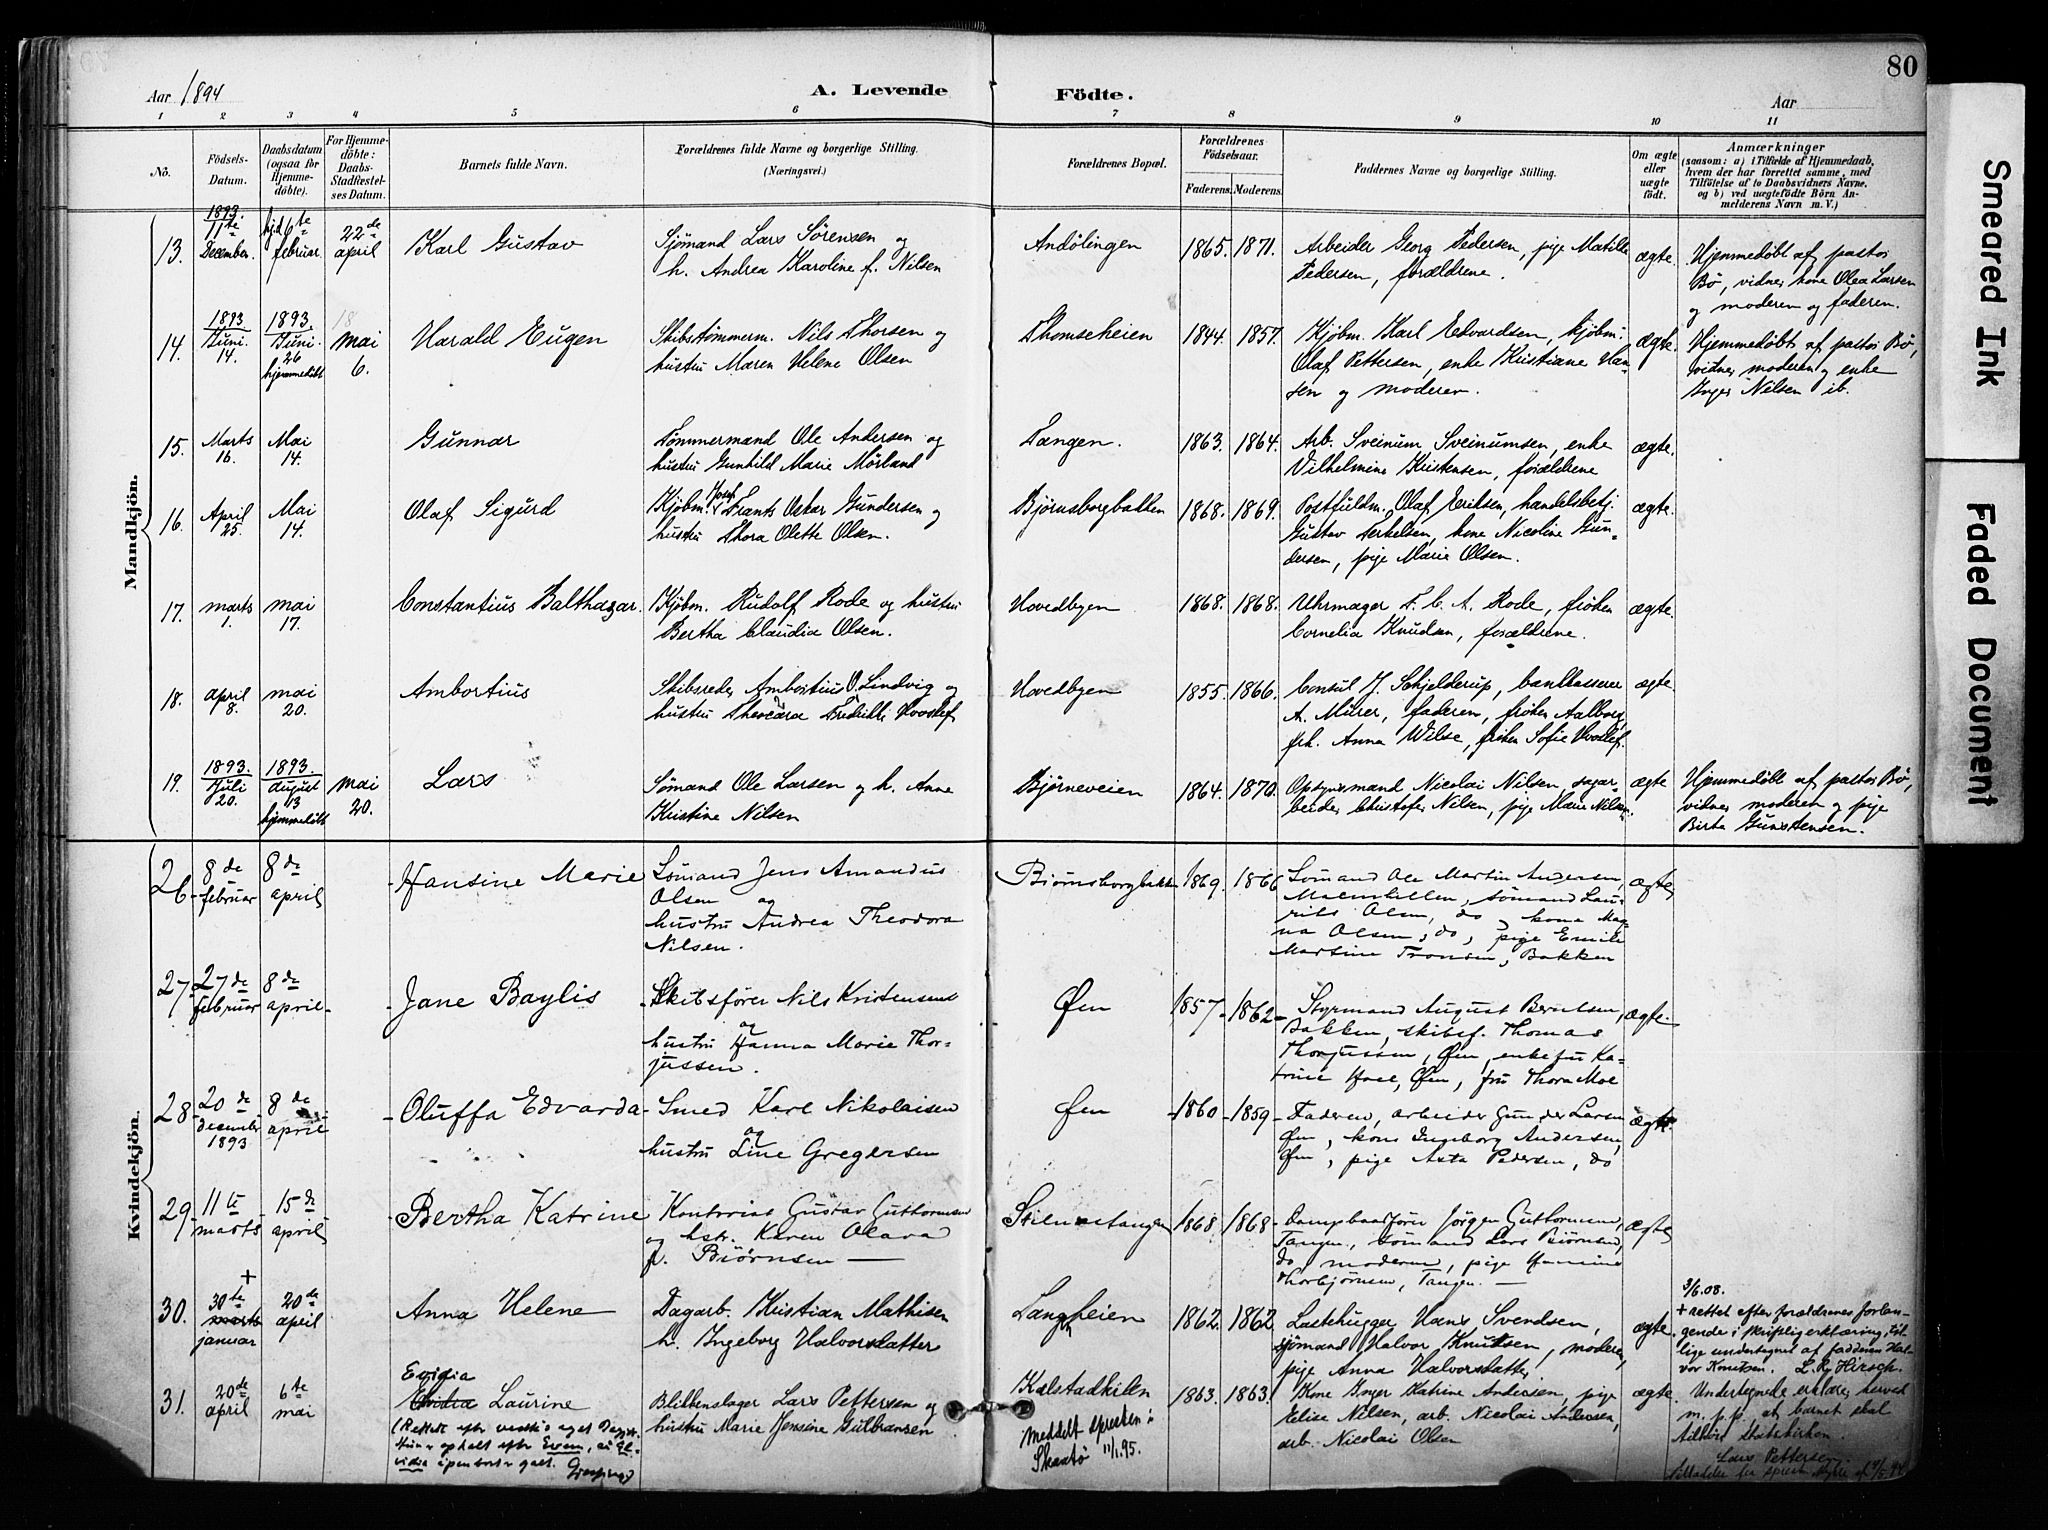 80
Aar 1894 A. Levende Födte. Aar
1 2 3 4 5 6 7 8 9 10 11
No. Födsels-Datum. Daabsdatum (ogsaa for Hjemmedöbte). For Hjemmedöbte: Daabs-Stadfæstelses Datum. Barnets fulde Navn. Forældrenes fulde Navne og borgerlige Stilling. (Næringsvei.) Forældrenes Bopæl. Forældrenes Födselsaar. Faderens. Moderens. Faddernes Navne og borgerlige Stilling. Om ægte eller uægte födt. Anmærkninger (saasom: a) i Tilfælde af Hjemmedaab, hvem der har forrettet samme, med Tilföielse af to Daabsvidners Navne, og b) ved uægtefödte Börn Anmelderens Navn m. V.)
Mandkjön.
13. 1893. 11te December. hjd 6te februar. 22de april Karl Gustav Sjømand Lars Sørensen og Andølingen 1865. 1871. Arbeider Georg Pedersen, pige Matilde ægte. Hjemmedøbt af pastor
h. Andrea Karoline f. Nilsen Pedersen, forældrene. Bø, vidner kone Olea Larsen
og moderen og faderen.
14. 1893 Juni 14. 1893. Juni 26 hjemmedøbt 18 Mai 6. Harald Eugen Skibstømmerm. Nils Thorsen og Thomseheien 1844. 1857. Kjøbm. Karl Edvardsen, kjøbm. ægte. Hjemmedøbt af pastor Bø,
hustru Maren Helene Olsen Olaf Pettersen, enke Kristiane Han- vidner moderen og enke
sen og moderen. Inger Nilsen ib.
15. Marts 16. Mai 14. Gunnar Tømmermand Ole Andersen og Tangen. 1863. 1864. Arb. Sveinum Sveinumsen, enke ægte.
hustru Gunhild Marie Mørland Vilhelmine Kristensen, forældrene
16. April 25. Mai 14. Olaf Sigurd Kjøbm. Josef Frants Oskar Gundersen og Bjørnsborgbakken 1868. 1869. Postfuldm. Olaf Eriksen, handelsbetj. ægte.
hustru Thora Olette Olsen. Gustav Terkelsen, kone Nicoline Gun-
dersen, pige Marie Olsen.
17. marts 1. mai 17. Constantius Balthazar. Kjøbm. Rudolf Rode og hustru Hovedbyen 1868. 1868. Uhrmager F. C. A. Rode, frøken ægte.
Bertha Claudia Olsen. Cornelia Knudsen, forældrene.
18. april 8. mai 20. Ambortius Skibsreder Ambortius O. Lindvig og Hovedbyen 1855. 1866. Consul J. Schjelderup, bankkasserer ægte
hustru A. Mürer, faderen, frøken Aalborg,
frk. Anna Wilse, frøken Sofie
19. 1893. Juli 20. 1893. August 13 hjemmedøbt mai 20. Lars Sømand Ole Larsen og h. Anne Bjørneveien 1864. 1870. Opsynsmand Nicolai Nilsen, sagar- ægte Hjemmedøbt af pastor Bø,
Kristine Nilsen beider Christofer Nilsen, pige Marie Nilsen. vidner moderen og pige
Birte Gunstensen.
Kvindekjön.
26 8de februar 8de april Hansine Marie Sømand Jens Amandus Biørnsborgbakk 1869. 1866 Sømand Ole Martin Andersen, ægte
Olsen og sømand Lau-
hustru Andrea Theodora rits Olsen, do, kona Mag-
Nilsen. na Olsen, do, pige Emilie
Martine Tronsen, Bakken
27 27de februar 8de april Jane Baylis Skibsfører Nils Kristensen Øen 1857 1862 Styrmand August Berntsen, ægte.
og Bakken, skibsf. Thomas
hustru Hanna Marie Thor- Thorjussen, Øen, enkefru Ka-
jussen. trine Hoel, Øen, fru Thora Moe
28 20de december 1893 8de april Oluffa Edvarda Smed Karl Nikolaisen Øen 1860 1859 Faderen, arbeider Gunder Larsen ægte.
og Øen, kone Ingeborg Andersen,
hustru Line Gregersen Øen, pige Asta Pedersen, do
29 11te marts 15de april Bertha Katrine Kontorist Gustav Guttormsen Stilnestangen 1868 1868 Dampbaadfører Jørgen Guttormsen, ægte
og hstr. Karen Olava Tangen, sømand Lars Biørnsen,
f. Biørnsen do, moderen, pige
Thorbjørnsen, Tangen.
30. + 30te marts januar 20de april Anna Helene Dagarb. Kristian Mathisen Langheien 1862. 1862 Lastehugger Hans Svendsen, ægte 3/6.08.
h. Ingeborg Halvorsdatter sjømand Halvor Knutsen, moderen, + rettet efter forældrenes forlan-
pige Anna Halvorsdatter gende i skriftlig erklæring, til-
lige undertegnet af fadderen Hal-
vor Knutsen. L. R. Hirsch.
31. 20de april 6te mai Evidia
Laurine Blikkenslager Lars Pettersen og Kalstadkilen 1863. 1863. Kone Inger Katrine Andersen, pige ægte. Undertegnede erklærer herved
(Rettet efter hustru Marie Jensine Gulbransen Meddelt presten i Elise Nilsen, arb. Nicolai Andersen, m.p.p. at barnet skal
Skaatø 11/1.95. arb. Nicolai Olsen tilhøre Statskirken.
Lars Pettersen.
Smeared Ink
Faded Document